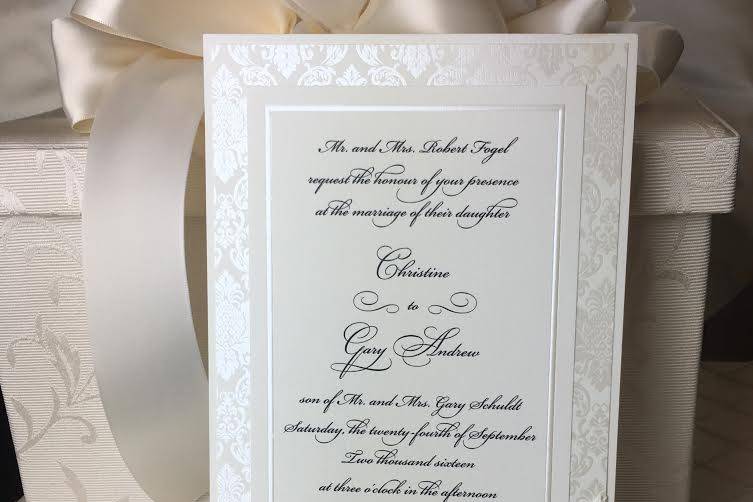 Mr. and Mrs. Robert Fogel
request the honour of your presence
at the marriage of their daughter
Christine
to
Gary Andrew
son of Mr. and Mrs. Gary Schuldt
Saturday, the twenty-fourth of September
Two thousand sixteen
at three o'clock in the afternoon